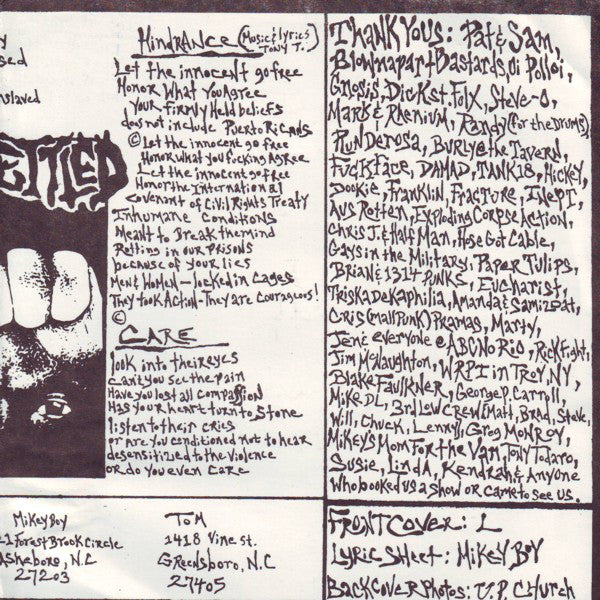 y
sed
nslaved
ETTLED
Hindrance (Music & lyrics Tony T.)
Let the innocent go free
Honor What You Agree
Your Firmly Held beliefs
does not include Puerto Ricans
© Let the innocent go free
Honor what you fucking Agree
Let the innocent go free
Honor the International
Covenant of Civil Rights Treaty
Inhumane Conditions
Meant to Break the mind
Rotting in our Prisons
because of your lies
Men & Women - locked in Cages
They took Action - They are Courageous!
©
CARE
look into their eyes
Can't you see the pain
Have you lost all compassion
Has your heart turn to Stone
listen to their cries
or are you conditioned not to hear
desensitized to the violence
or do you even care
Mikey Boy
21 Forest Brook Circle
Asheboro, N.C
27203
Tom
1418 Vine St.
Greensboro, N.C
27405
Thank yous: Pat & Sam,
Blownapart Bastards, Oi Polloi,
Gnosis, Dickst. Folx, Steve-O,
Mark & Rhenium, Randy (for the Drums)
Plunderosa, Burly @ the Tavern,
FuckFace, DAMAD, TANK18, Mickey,
Dookie, Franklin, Fracture, Inept,
Aus Rotten, Exploding Corpse Action,
Chris J. & Half Man, Hose Got Cable,
Gays in the Military, Paper Tulips,
Brian & 1314 Punks, Eucharist,
Triskadekaphilia, Amanda & Samizdat,
Cris (Mall Punk) Pramas, Marty,
Jen & everyone @ ABC No Rio, Rick Fight,
Jim McNaughton, WRPI in Troy, NY,
Blake Faulkner, George P. Carroll,
Mike DL, 3rd Low Crew (Matt, Brad, Steve,
Will, Chuck, Lenny), Greg Monroy,
Mikey's Mom For the Van, Tony Todaro,
Susie, Linda, Kendrah & Anyone
Who booked us a show or came to see us.
Front Cover: L
Lyric Sheet: Mikey Boy
Back Cover Photos: U.P. Church